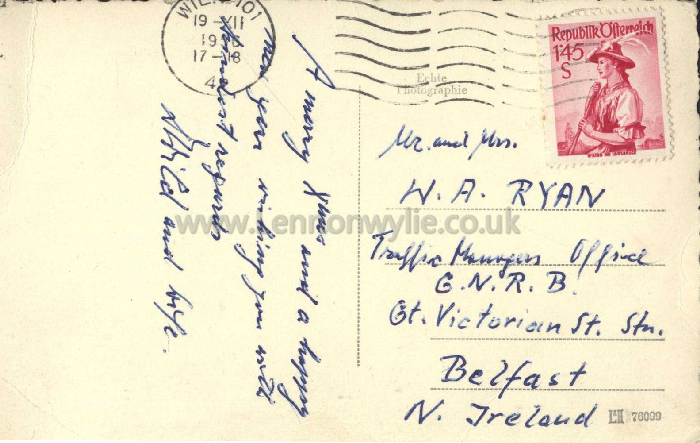 A merry Xmas and a happy
New year wishing you with
kindest regards
and wife.
19 XII
17-18
Echte
Photographie
Republik Österreich
1'45
S
Mr. and Mrs.
W. A. RYAN
Traffic Managers Office
G.N.R.B.
Gt. Victorian St. Stn.
Belfast
N. Ireland
76099
www.Lennonwylie.co.uk